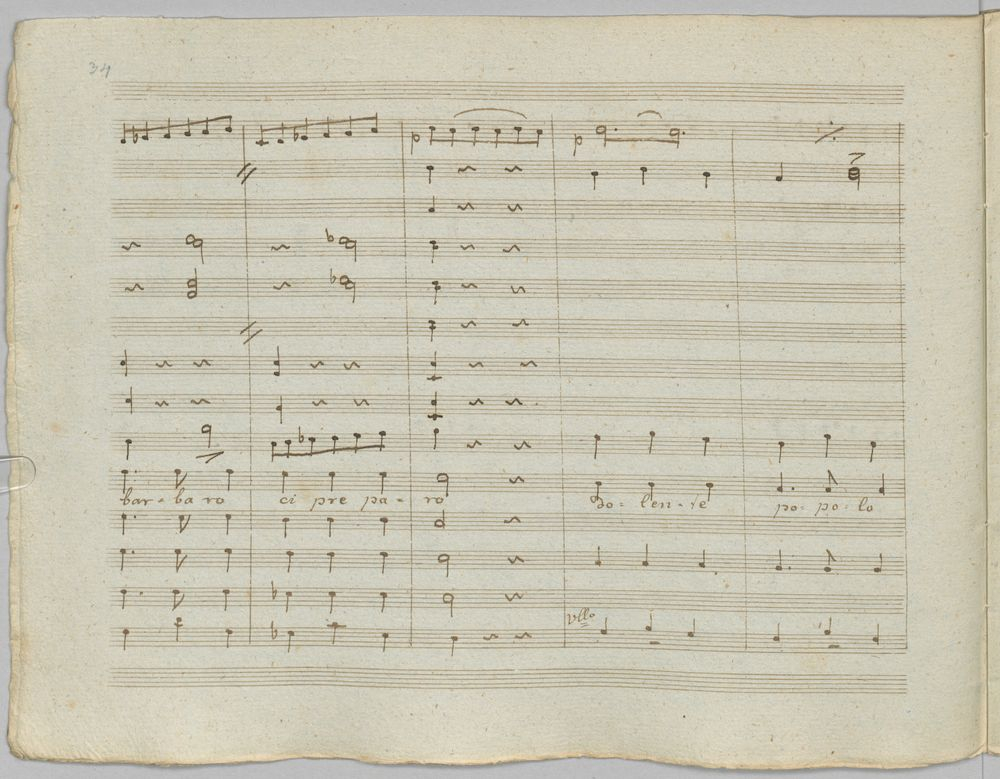 34
p
p
bar - ba ro ci pre pa - ro Do - len - te po - po - lo
Vllo